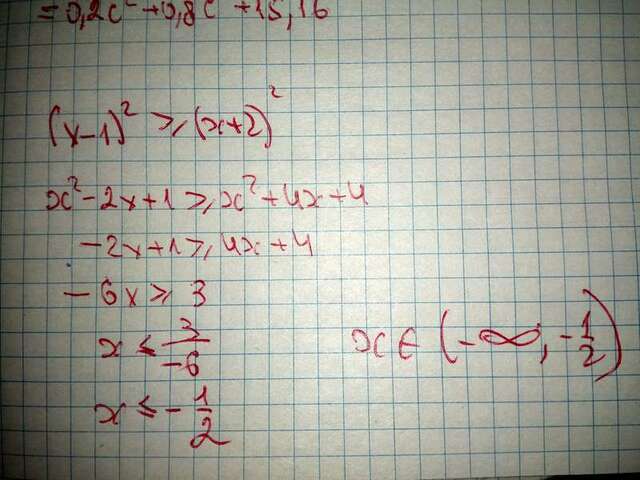 = 0,2c² + 0,8c + 15,16
(x-1)² ≥ (x+2)²
x² - 2x + 1 ≥ x² + 4x + 4
-2x + 1 ≥ 4x + 4
-6x ≥ 3
x ≤ 3/-6
x ∈ (-∞, -1/2)
x ≤ -1/2